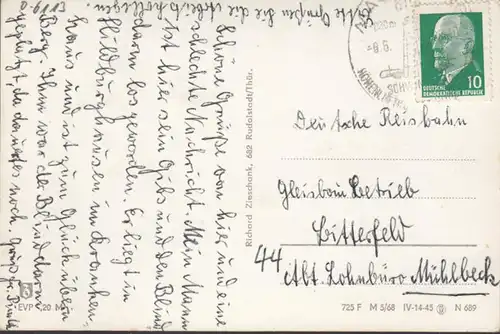 Bitte Grüßen Sie die Arbeitskollegen
Schöne Grüße von hier und eine
schlechte Nachricht. Mein Mann
ist hier sein Gips und den Blind
darm los geworden. Er liegt in
Hildburghausen im Kranken-
haus und ist zum Glück übern
Berg. Ihm war der Blinddarm
geplatzt, da dauert es noch. Gruß
EVP
Richard Zieschank, 682 Rudolstadt/Thür.
DEUTSCHE
DEMOKRATISCHE REPUBLIK
10
Deutsche Reichsbahn
Gleisbau Betrieb
Bitterfeld
44
Abt. Lohnbüro Mühlbeck
725 F M 5/68 IV-14-45 N 689